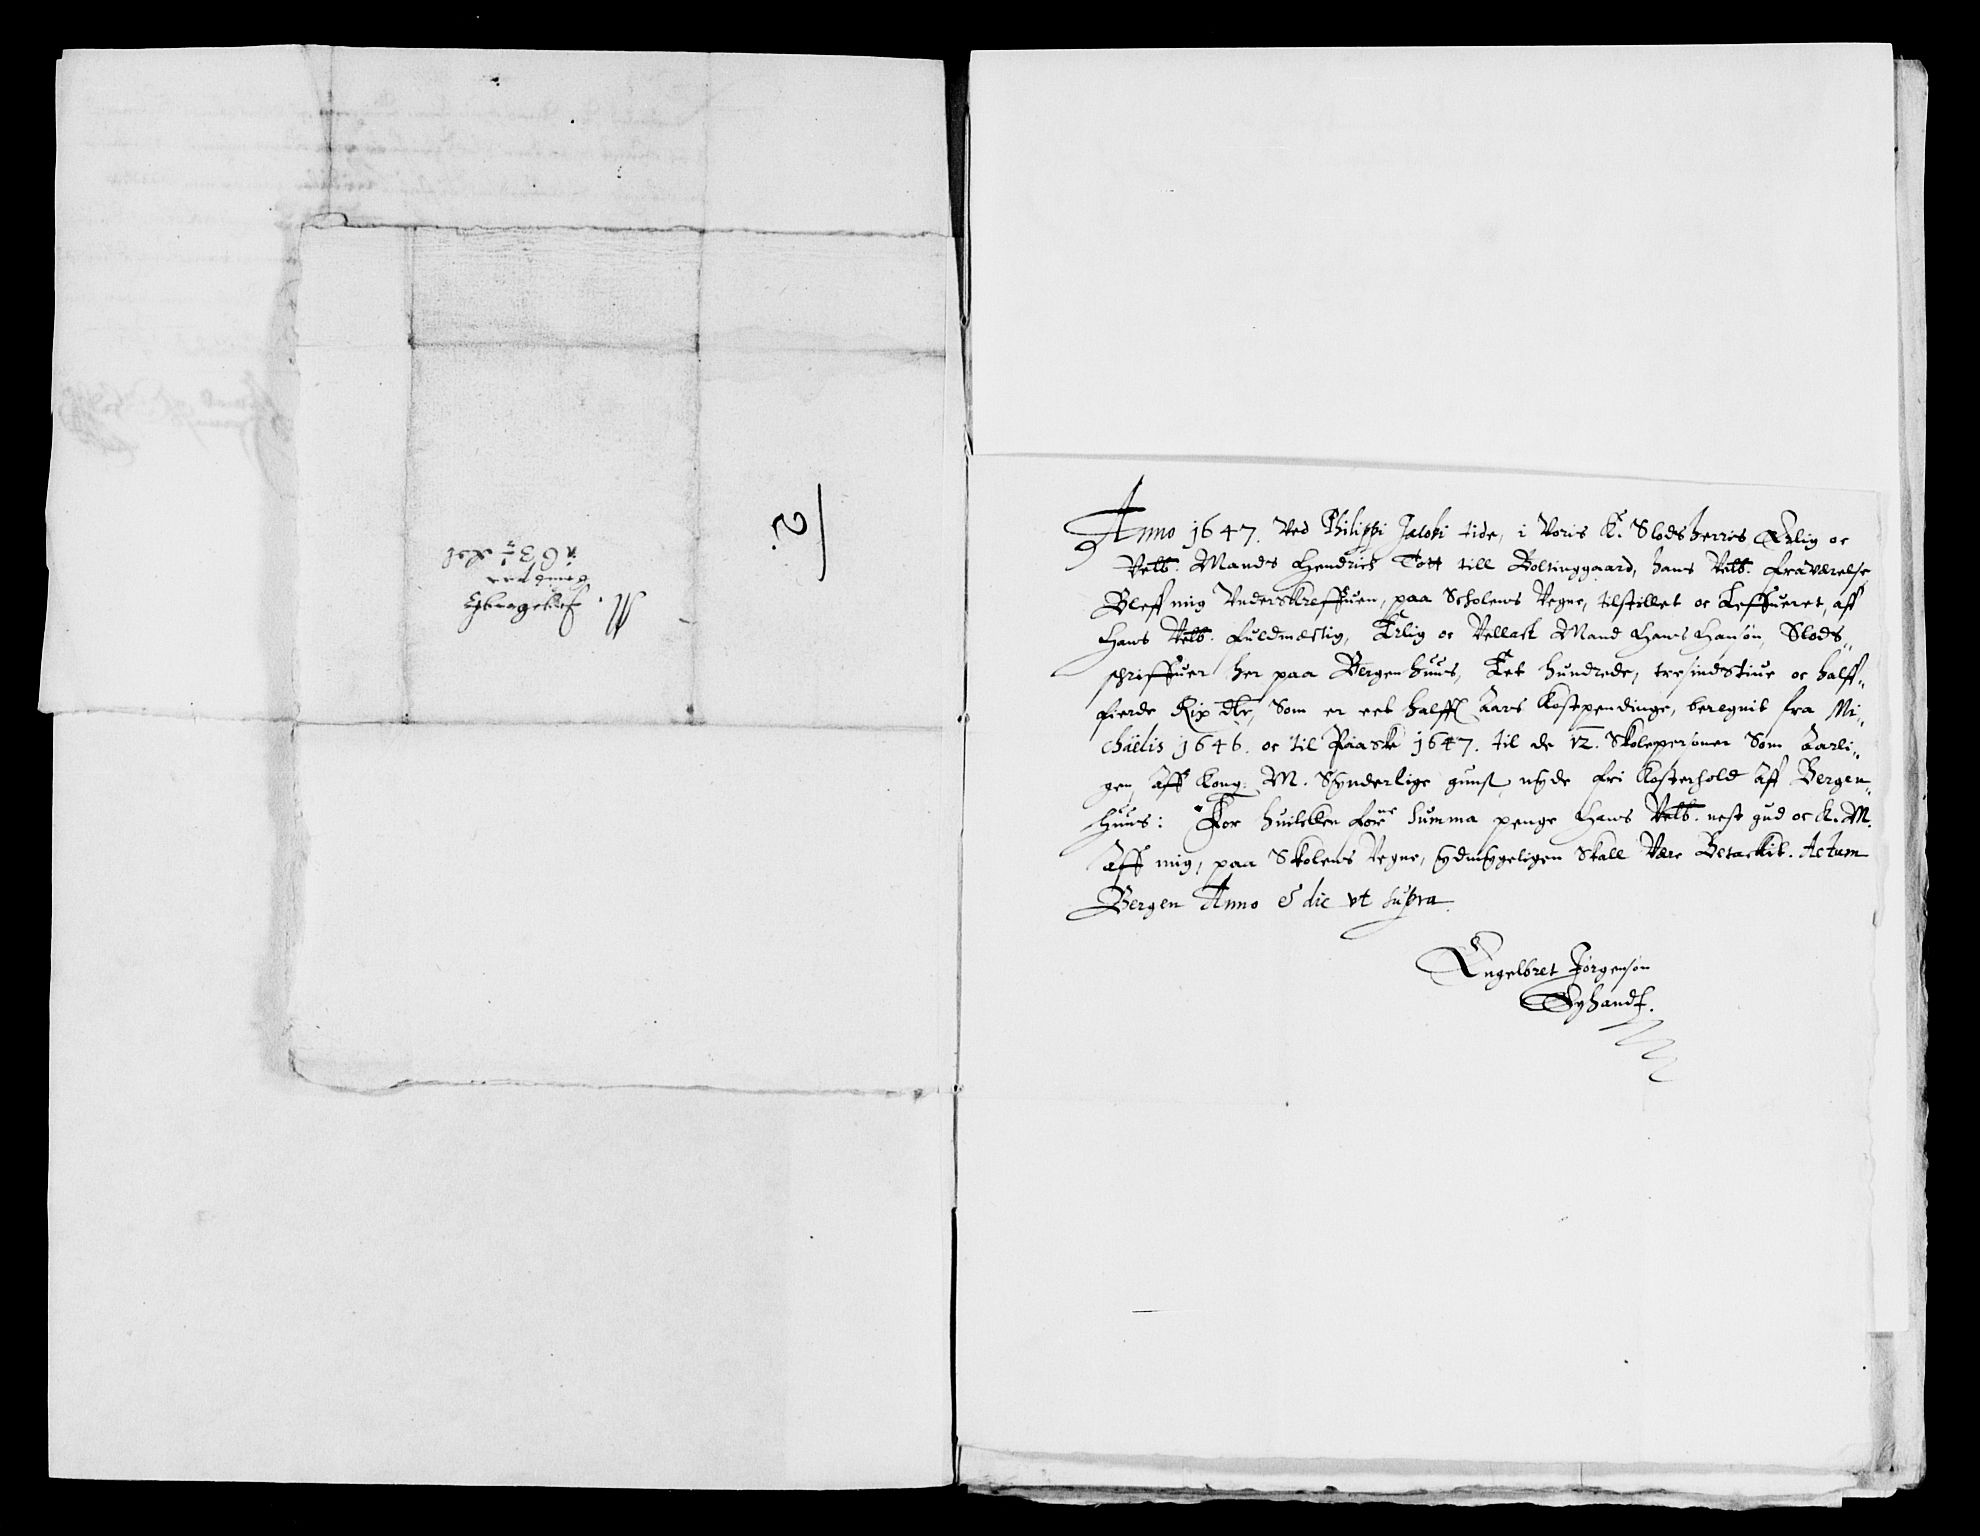 2.
Anno 1647. Ved Philippi Jacobi tide, i Voris K. Slodsherris Erlig oc
Velb. Mands Hendrich Tott till Boltinggaard, hans Velb. fraværelse,
Bleff mig Underskreffuen, paa Scholens Vegne, tilstillet oc Leffueret, aff
Hans Velb. fuldmectig, Erlig oc Vellact Mand Hans Hansøn, Slods„
schriffuer her paa Bergenhuus, Eet hundrede, tresindstiue oc halff„
fierde Rix dlr, Som er eet halfft Aars Kostpendinge, beregnit fra Mi„
chaëlis 1646. oc til Paaske 1647. til de 12. Skolepersoner Som Aarli„
gen, Aff Kong: M. Synderlige gunst nyde fri Kosterhold Aff Bergen„
huus: For huilcken forne Summa penge Hans Velb. nest gud oc K. M.
Aff mig, paa Skolens Vegne, ydmygeligen Skall Være Betackit. Actum
Bergen Anno & die ut supra.
Engelbret Jørgensøn
Eyhandt.